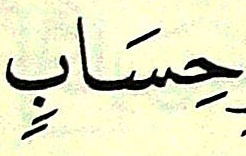 حِسَابٍ